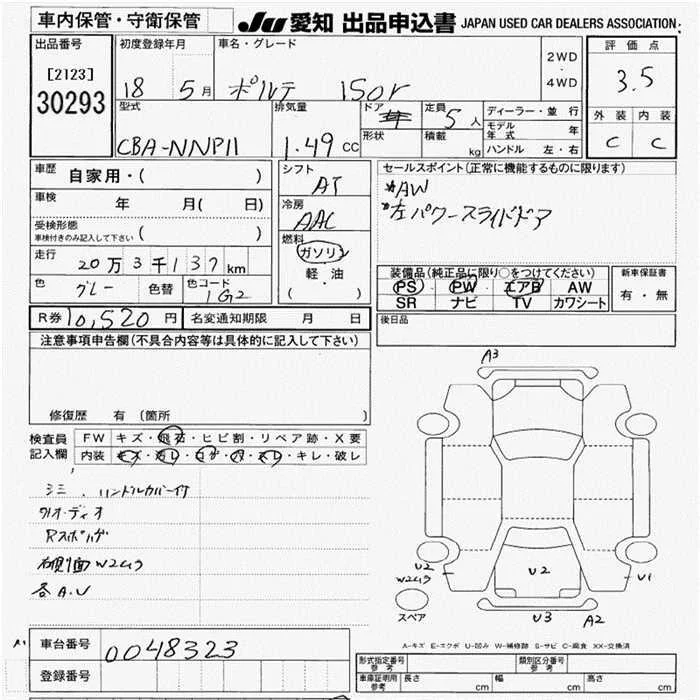 車内保管・守衛保管
JU 愛知 出品申込書 JAPAN USED CAR DEALERS ASSOCIATION
出品番号
[2123]
30293
初度登録年月
18 5月
車名・グレード
ポルテ 150r
2WD
・
4WD
評価点
3.5
外装 内装
C C
型式
CBA-NNP11
排気量
1.49 cc
ドア
形状
定員
5人
積載
kg
ディーラー・並行
モデル年式 年
ハンドル 左・右
車歴
自家用・( )
車検
年 月( 日)
受検形態
車検付きのみ記入して下さい ( )
走行
20万3千137km
色
グレー
色替
色コード
1G2
シフト
AT
冷房
AAC
燃料
ガソリン
軽・油
( ・ )
セールスポイント(正常に機能するものに限ります)
*AW
*左パワースライドドア
装備品(純正品に限り○をつけてください)
PS・PW・エアB・AW
SR ナビ TV カワシート
新車保証書
有・無
後日品
R券 10,520 円
名変通知期限 月 日
注意事項申告欄(不具合内容等は具体的に記入して下さい)
修復歴 有 (箇所 )
検査員
記入欄
FW キズ・飛石・ヒビ割・リペア跡・X要
内装 キズ・汚レ・コゲ・穴・スレ・キレ・破レ
シミ、ハンドルカバー付
オーディオ
Rスポイラ
右側面W2U3
各A.U
A3
U2
W2U3
U2
U1
U3
A2
スペア
A-キズ E-エクボ U-凹み W-補修跡 S-サビ C-腐食 XX-交換済
車台番号
0048323
登録番号
形式指定番号
参考
類別区分番号
参考
車庫証明用
参考
長さ cm
幅 cm
高さ cm